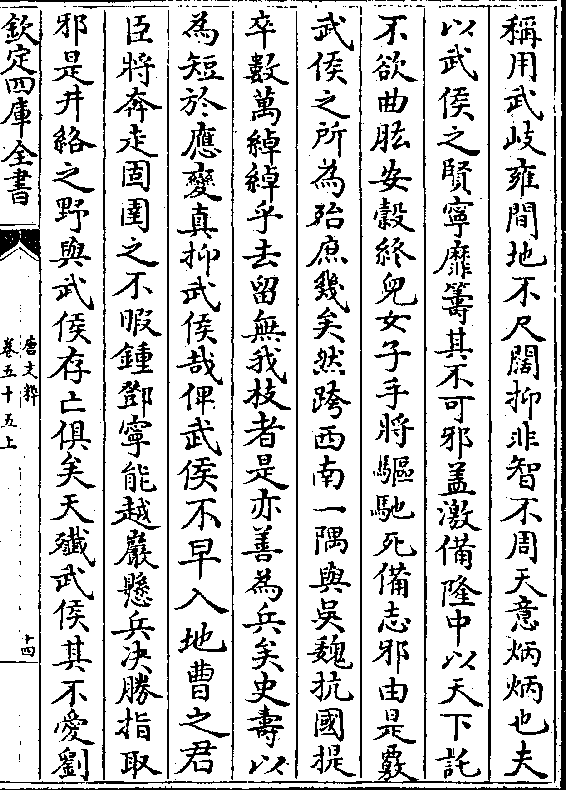 稱用武岐雍間地不尺闊抑非智不周天意炳炳也夫
以武侯之賢寧靡籌其不可邪盖激備隆中以天下託
不欲曲肱安穀終兒女子手將驅馳死備志邪由是覈
武侯之所為殆庶幾矣然跨西南一隅與吳魏抗國提
卒數萬綽綽乎去留無我枝者是亦善為兵矣史壽以
為短於應變真抑武侯哉俾武侯不早入地曹之君
臣將奔走固圉之不暇鍾鄧寧能越巖懸兵决勝指取
邪是井絡之野與武侯存亡俱矣天殲武侯其不愛劉
欽定四庫全書
唐文粹
卷五十五上
十四